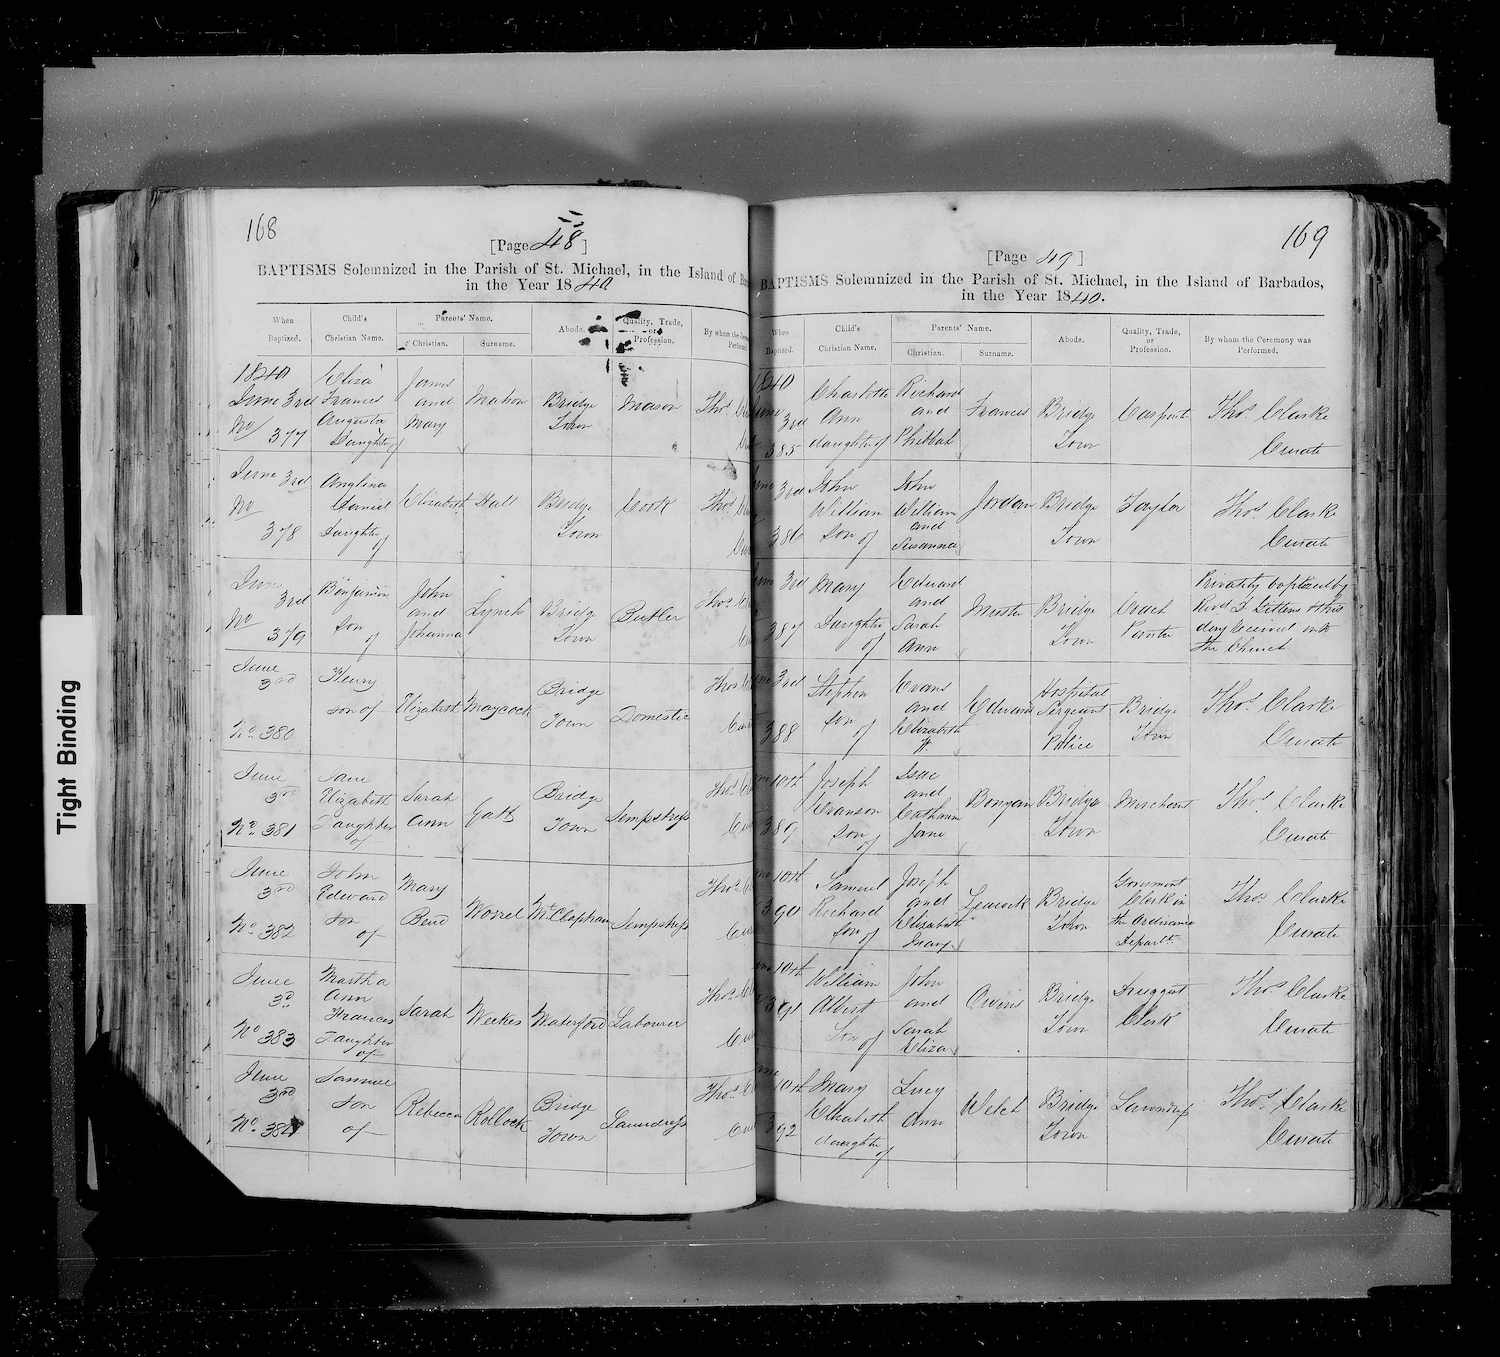 Tight Binding
168
[Page 48]
BAPTISMS Solemnized in the Parish of St. Michael, in the Island of
in the Year 1840
When Baptized. Child's Christian Name. Parents' Name. Christian. Surname. Abode. Quality, Trade, or Profession. By whom the
1840
June 3rd
No 377
Eliza
Frances
Augusta
Daughter of
James
and
Mary
Mahon
Bridge
Town
Mason
Thos.
June 3rd
No
378
Daughter
of
Elizabeth
Hall
Bridge
Town
Cook
Thos.
June
3rd
No
379
Benjamin
Son
of
John
and
Johanna
Lynch
Bridge
Town
Butler
Thos.
June
3rd
No. 380
Henry
son of
Elizabeth
Maycock
Bridge
Town
Domestic
Thos.
June
3rd
No. 381
Jane
Elizabeth
Daughter
of
Sarah
Ann
Bridge
Town
Sempstress
Thos.
June
3rd
No. 382
John
Edward
Son
of
Mary
Worrel
McClapham
Sempstress
Thos.
June
3d
No 383
Martha
Ann
Frances
Daughter
of
Sarah
Weekes
Waterford
Labourer
Thos.
June
3rd
No. 384
Samuel
Son
of
Rebecca
Rollock
Bridge
Town
Laundress
Thos.
169
[Page 49]
BAPTISMS Solemnized in the Parish of St. Michael, in the Island of Barbados,
in the Year 1840.
When Baptized. Child's Christian Name. Parents' Name. Christian. Surname. Abode. Quality, Trade, or Profession. By whom the Ceremony was Performed.
1840
3rd
385
Charlotte
Ann
daughter of
Richard
and
Phibbah
Francis
Bridge
Town
Thos. Clarke
Curate
3rd
386
John
William
Son of
John
William
and
Susanna
Jordan
Bridge
Town
Taylor
Thos. Clarke
Curate
3rd
387
Mary
Daughter
of
Edward
and
Sarah
Ann
Bridge
Town
Coach
Painter
Privately baptized by
Revd
day received into
the Church
3rd
388
Stephen
Son
of
Evans
and
Elizabeth
Edwards
Hospital
Sergeant
Police
Bridge
Town
Thos. Clarke
Curate
10th
389
Joseph
Son
of
Isaac
and
Jane
Bridge
Town
Merchant
Thos. Clarke
Curate
10th
390
Samuel
Richard
Son
of
Joseph
and
Elizabeth
Mary
Leacock
Bridge
Town
Government
Clerk in
the Ordinance
Departt.
Thos. Clarke
Curate
10th
391
William
Albert
Son
of
John
and
Sarah
Eliza
Bridge
Town
Druggist
Clerk
Thos. Clarke
Curate
10th
392
Mary
Elizabeth
daughter
of
Lucy
Ann
Welch
Bridge
Town
Laundress
Thos. Clarke
Curate